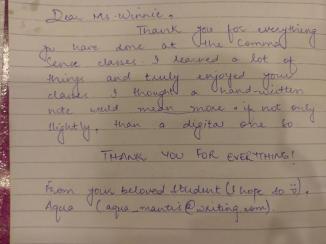 Dear Ms. Winnie,
Thank you for everything
you have done at the Comma
Cence classes. I learned a lot of
things and truly enjoyed your
classes. I thought a hand-written
note would mean more, if not only
slightly, than a digital one so
THANK YOU FOR EVERYTHING!
From your beloved student (I hope so ü),
Aqua (aqua_mantis@writing.com)